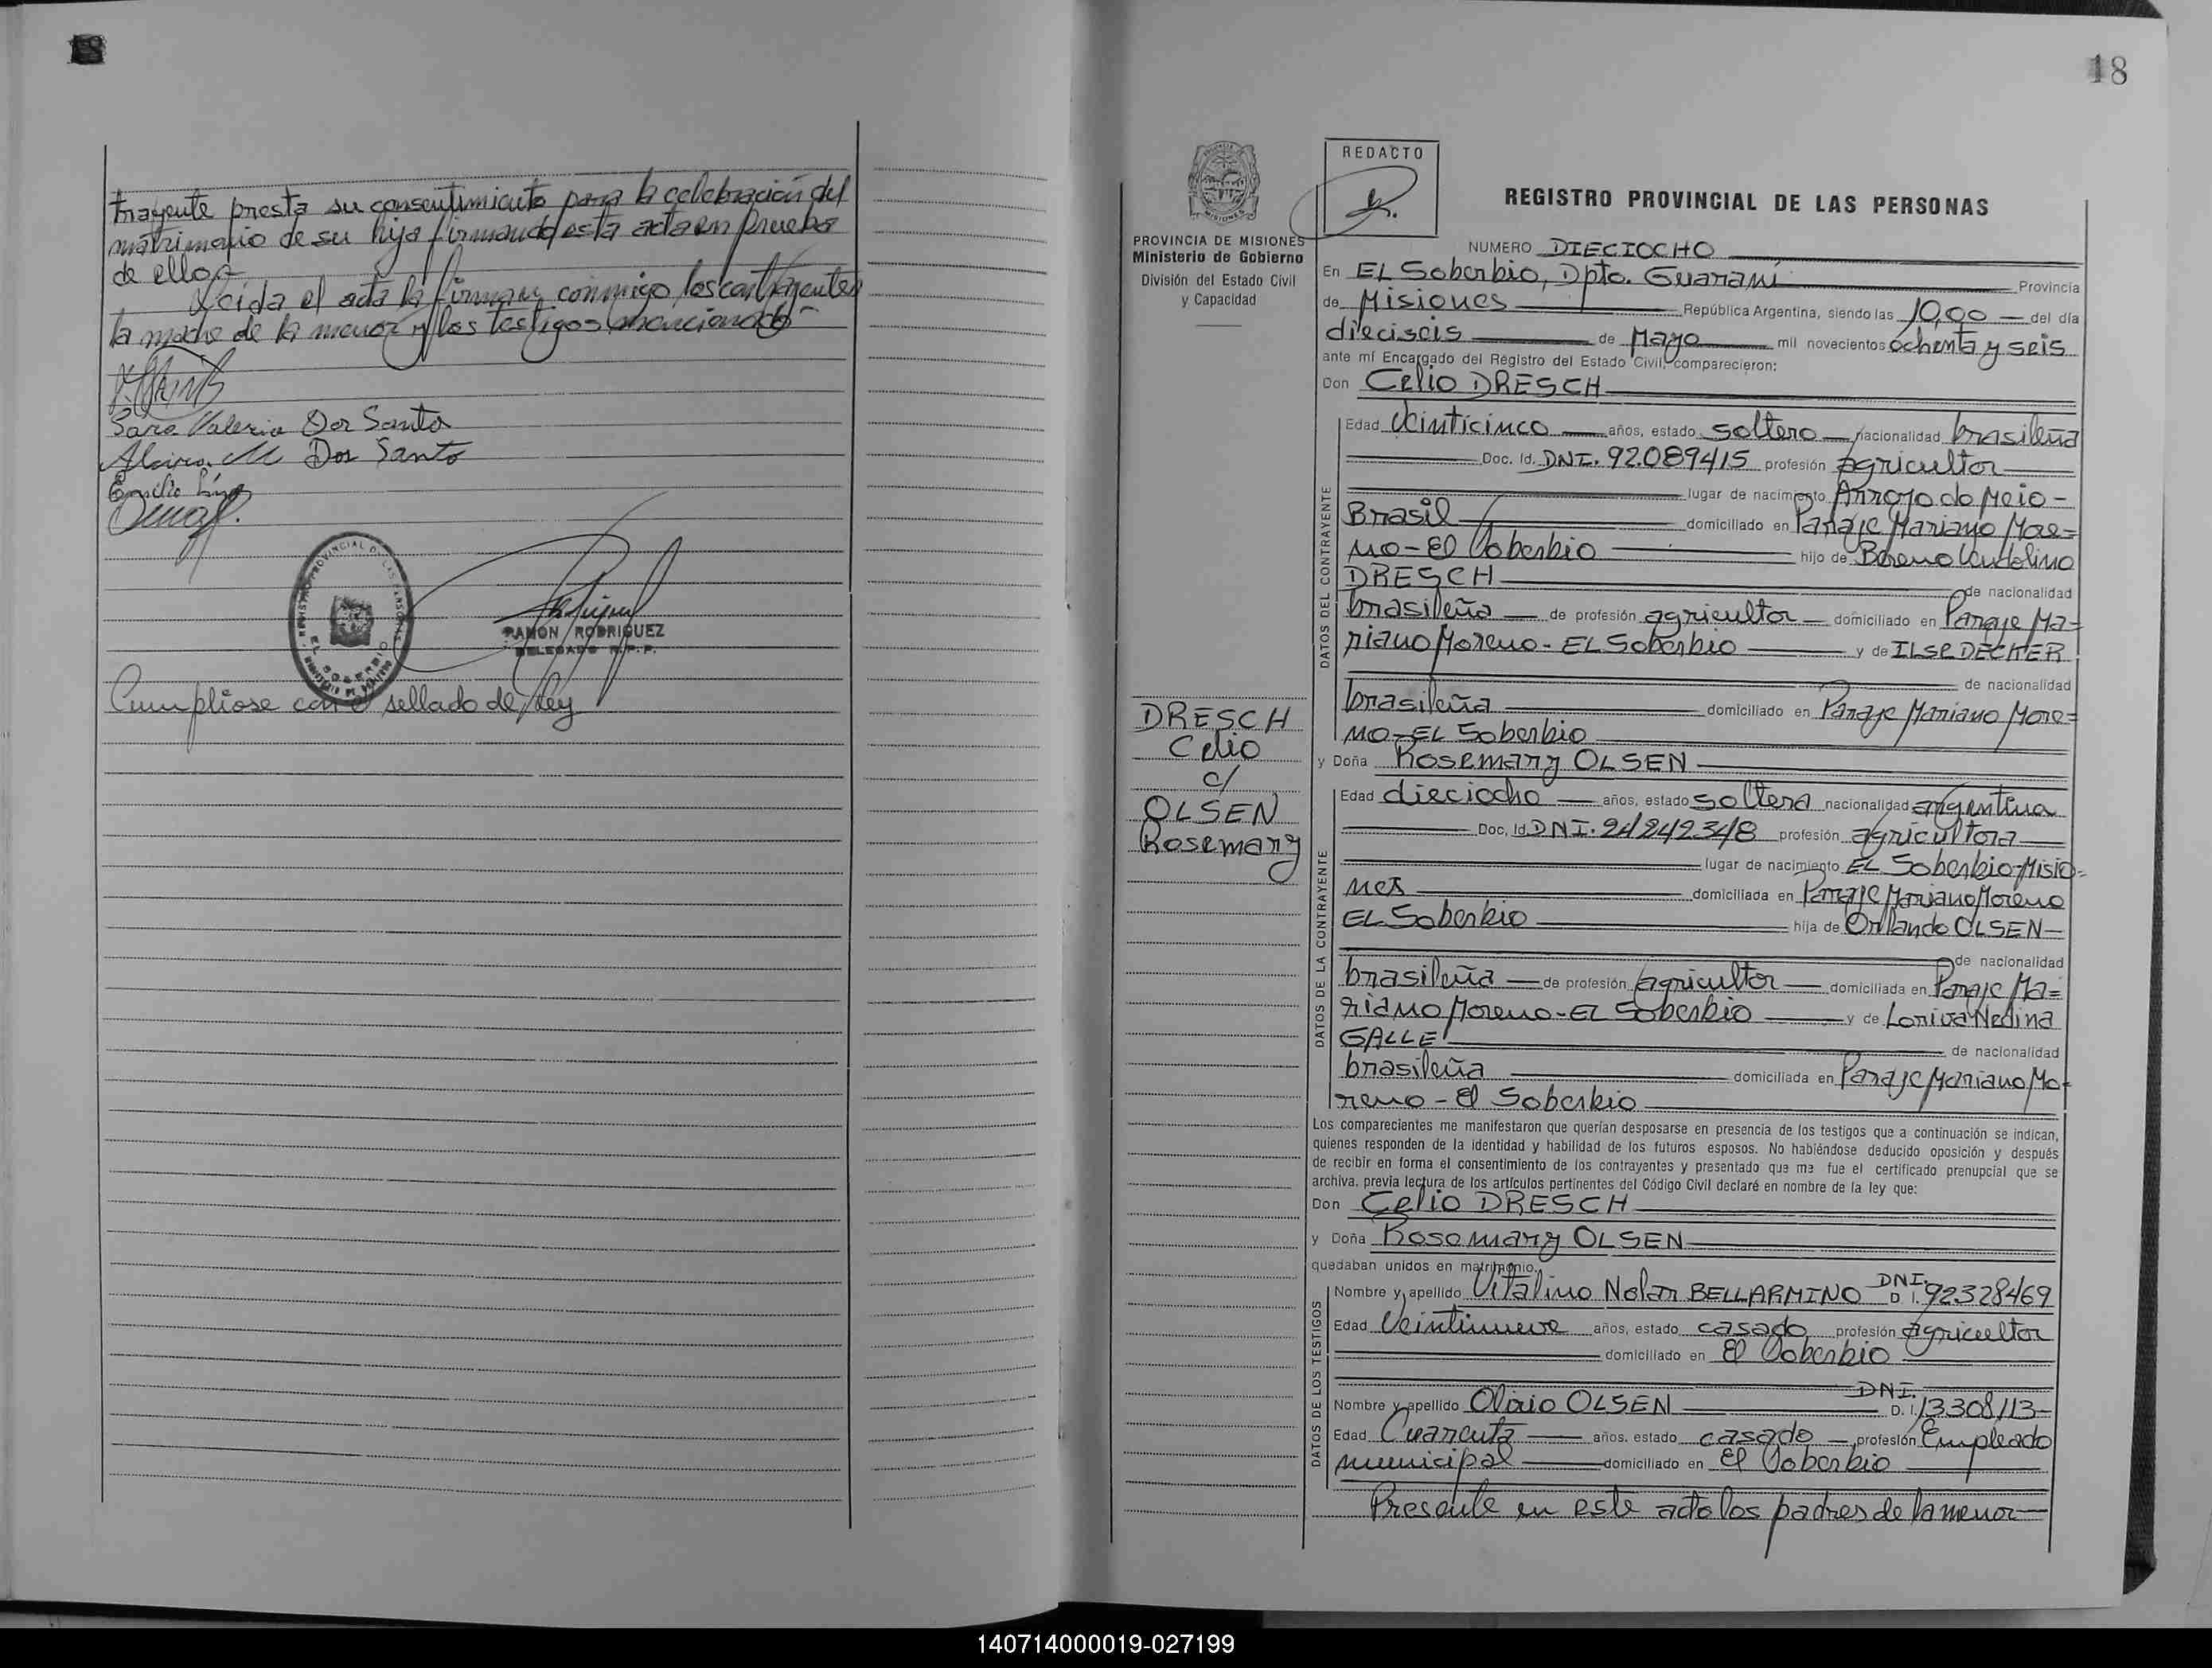 trayente presta su consentimiento para la celebración del
matrimonio de su hija firmando esta acta en prueba
de ello
Leida el acta la firman conmigo los contrayentes
la madre de la menor y los testigos mencionados
Sara Valeria Dos Santo
Dos Santo
Emilio
REGISTRO PROVINCIAL DE LAS PERSONAS
EL SOBERBIO
RAMON RODRIGUEZ
DELEGADO R.P.P.
Cumpliose con el sellado de ley
18
PROVINCIA DE MISIONES
Ministerio de Gobierno
División del Estado Civil
y Capacidad
REDACTO
REGISTRO PROVINCIAL DE LAS PERSONAS
NUMERO DIECIOCHO
En EL Soberbio, Dpto. Guaraní Provincia
de Misiones República Argentina, siendo las 10,00 del día
dieciseis de Mayo mil novecientos ochenta y seis
ante mí Encargado del Registro del Estado Civil, comparecieron:
Don Celio DRESCH
DATOS DEL CONTRAYENTE
Edad Veinticinco años, estado soltero nacionalidad brasileña
Doc. Id. DNI. 92.089415 profesión agricultor
lugar de nacimiento Arroyo do Meio-
Brasil domiciliado en Paraje Mariano More=
no-El Soberbio hijo de Breno Vendolino
DRESCH de nacionalidad
brasileña de profesión agricultor domiciliado en Paraje Ma=
riano Moreno-EL Soberbio y de ILSE DECKER
de nacionalidad
brasileña domiciliado en Paraje Mariano More=
no-EL Soberbio
DRESCH
Celio
c/
OLSEN
Rosemary
y Doña Rosemary OLSEN
DATOS DE LA CONTRAYENTE
Edad dieciocho años, estado soltera nacionalidad argentina
Doc. Id. DNI. 24242348 profesión agricultora
lugar de nacimiento EL Soberbio-Misio=
nes domiciliada en Paraje Mariano Moreno
EL Soberbio hija de Orlando OLSEN
de nacionalidad
brasileña de profesión agricultor domiciliada en Paraje Ma=
riano Moreno-EL Soberbio y de Loriva Nedina
GALLE de nacionalidad
brasileña domiciliada en Paraje Mariano Mo-
reno-El Soberbio
Los comparecientes me manifestaron que querían desposarse en presencia de los testigos que a continuación se indican,
quienes responden de la identidad y habilidad de los futuros esposos. No habiéndose deducido oposición y después
de recibir en forma el consentimiento de los contrayentes y presentado que me fue el certificado prenupcial que se
archiva, previa lectura de los artículos pertinentes del Código Civil declaré en nombre de la ley que:
Don Celio DRESCH
y Doña Rosemary OLSEN
quedaban unidos en matrimonio.
DATOS DE LOS TESTIGOS
Nombre y apellido Vitalino Nelar BELLARMINO DNI. D. I. 92328469
Edad Veintinueve años, estado casado profesión agricultor
domiciliado en El Soberbio
Nombre y apellido Olavio OLSEN DNI. D. I. 13308113
Edad Cuarenta años, estado casado profesión Empleado
municipal domiciliado en El Soberbio
Presente en este acto los padres de la menor
140714000019-027199